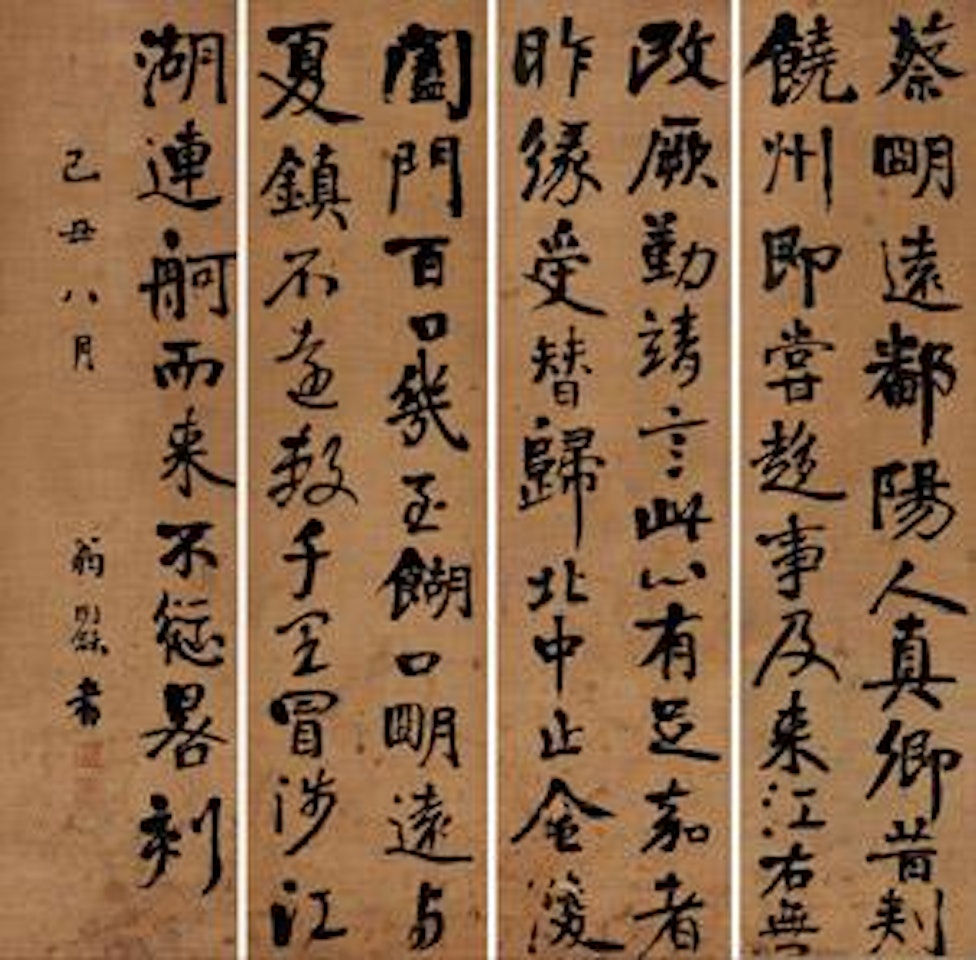 蔡朙遠鄱陽人真卿昔刾
饒州即甞趍事及来江右無
改厥勤靖言此心有足嘉者
昨緣受替歸北中止金陵
闔門百口幾至餬口朙遠与
夏鎮不遠數千里冒涉江
湖連舸而来不愆晷刻
己丑八月 翁同龢書